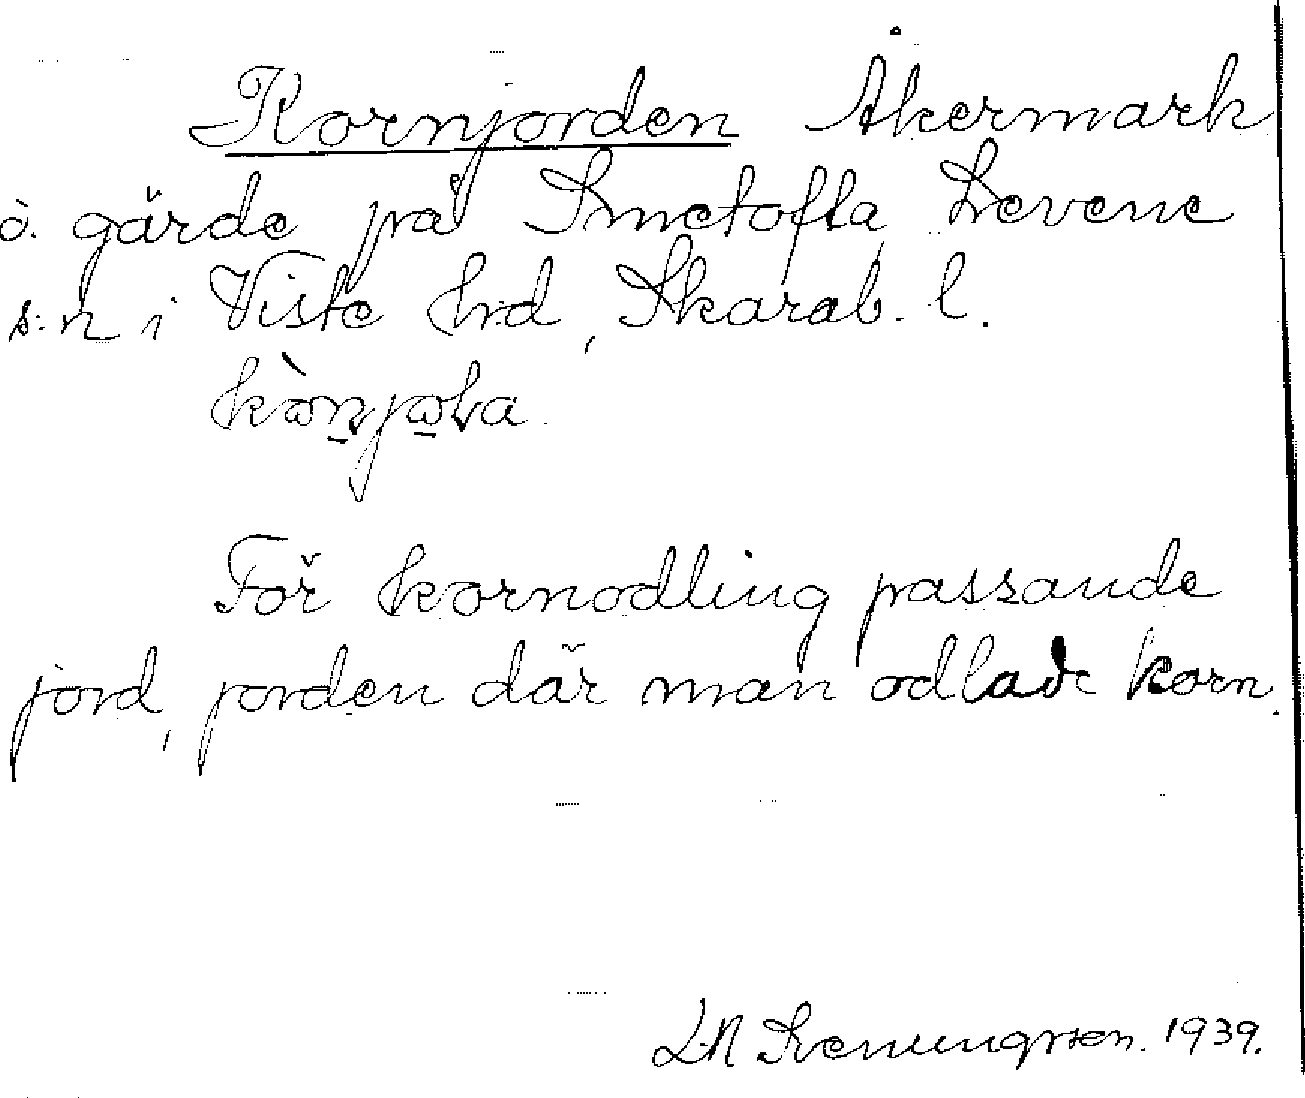 Kornjorden Åkermark
o. gärde på Smetofta, Levene
s:n i Viste hrd, Skarab. l.

För kornodling passande
jord, jorden där man odlade korn.
L.N Svenungsson. 1939.